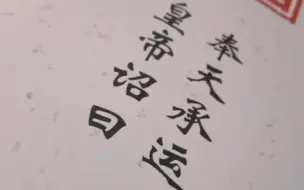 奉天承运
皇帝诏曰